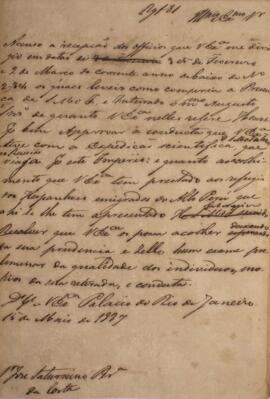 Illmo Exmo Sr
Accuso a recepção dos officios que V Exa me di
rigio em datas de 3 e 5 de Fevereiro
2 de Março do corrente anno debaixo de Nos
os quaes levei como cumpria a Presen
ça de S. M. o I. e Inteirado o mesmo Augusto
Snr de quanto V Exa nelles refere Houve
por bem Approvar a conducta que
teve com a Expedicão scientifica que
viaja por este Imperio; e quanto ao acolhi
mento que V Exa tem prestado aos refugia
dos Hespanhoes emigrados do Alto Perú que
ahi se lhe tem apresentado
Resolver que V Exa os possa acolher
sua prudencia e delles hum exame pre
liminar da qualidade dos individuos, mo
tivos da sua retirada, e conducta.
Ds Ge a V Exa Palacio do Rio de Janeiro
de Maio de 1827
Sr José Saturnino
da Costa